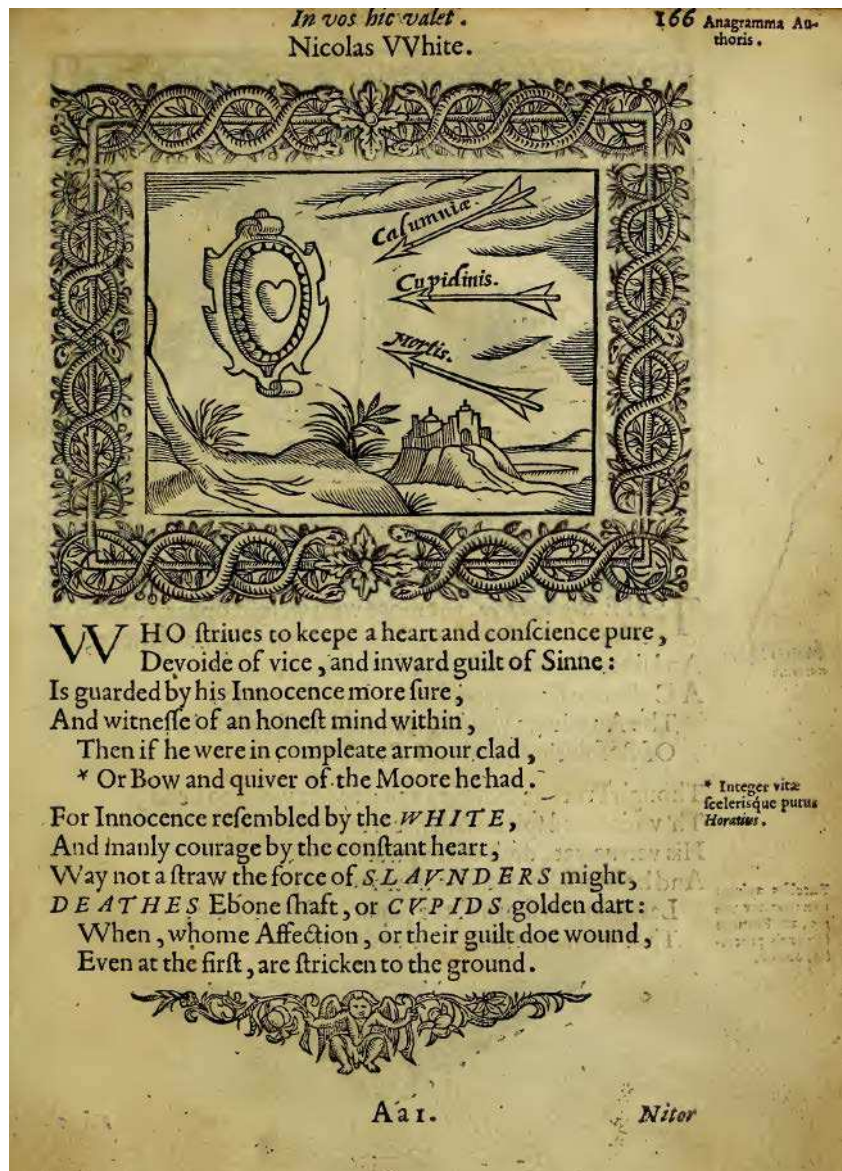 In vos hic valet.
166
Anagramma Au-
thoris.
Nicolas VVhite.
Calumniæ.
Cupidinis.
Mortis.
VVHO ſtriues to keepe a heart and conſcience pure,
Devoide of vice, and inward guilt of Sinne:
Is guarded by his Innocence more ſure,
And witneſſe of an honeſt mind within,
Then if he were in compleate armour clad,
* Or Bow and quiver of the Moore he had.
* Integer vitæ
ſcelerisque purus
Horatius.
For Innocence reſembled by the WHITE,
And manly courage by the conſtant heart,
Way not a ſtraw the force of SLAVNDERS might,
DEATHES Ebone ſhaft, or CVPIDS golden dart:
When, whome Affection, or their guilt doe wound,
Even at the firſt, are ſtricken to the ground.
Aa1.
Nitor